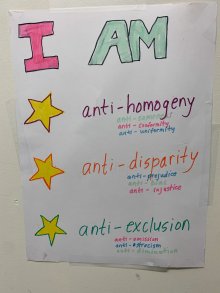 I AM
anti-homogeny
anti-sameness
anti-conformity
anti-uniformity
anti-disparity
anti-prejudice
anti-bias
anti-injustice
anti-exclusion
anti-omission
anti-ostracism
anti-elimination